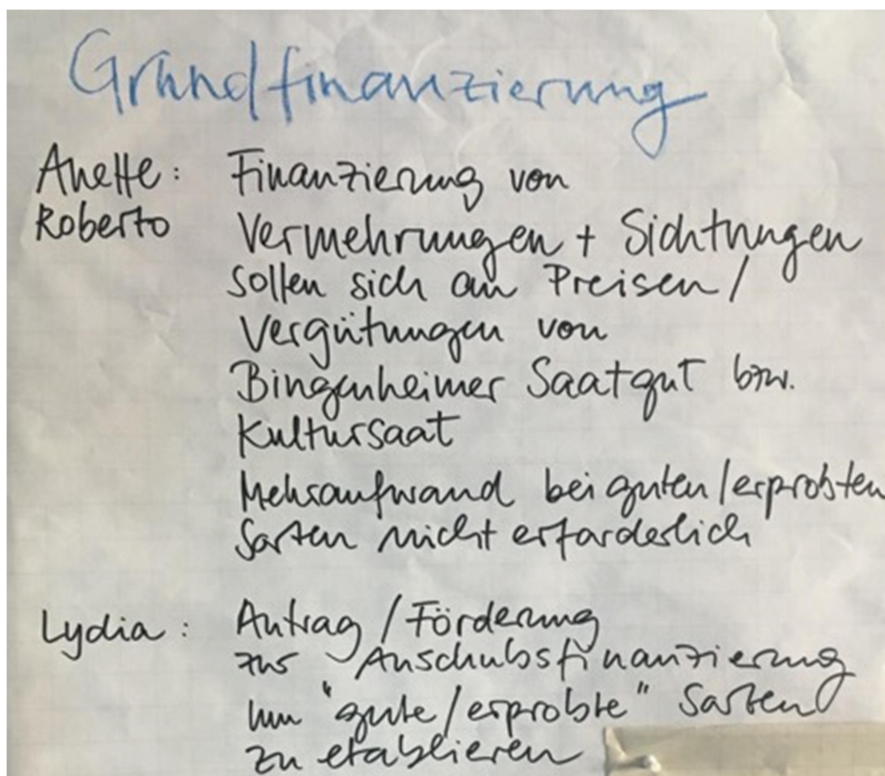 Grundfinanzierung
Anette: Finanzierung von
Roberto Vermehrungen + Sichtungen
sollen sich an Preisen /
Vergütungen von
Bingenheimer Saatgut bzw.
Kultursaat
Mehraufwand bei guten/erprobten
Sorten nicht erforderlich
Lydia: Antrag / Förderung
zur Anschubsfinanzierung
um "gute/erprobte" Sorten
zu etablieren